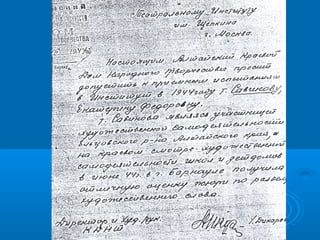 Театральному Институту
им. Щепкина
г. Москва.
Настоящим Алтайский Краевой
Дом Народного Творчества просит
допустить к приемным испытаниям
в Институт в 1944 году т. Савинову,
Екатерину Федоровну.
т. Савинова являясь участницей
художественной самодеятельности
Ельцовского р-на Алтайского края и
на краевом смотре художественной
самодеятельности школ и детдомов
в июне 44г. в г. Барнауле получила
отличную оценку жюри по разделу
художественного слова.
Директор и Худ. Рук.
КДНТ